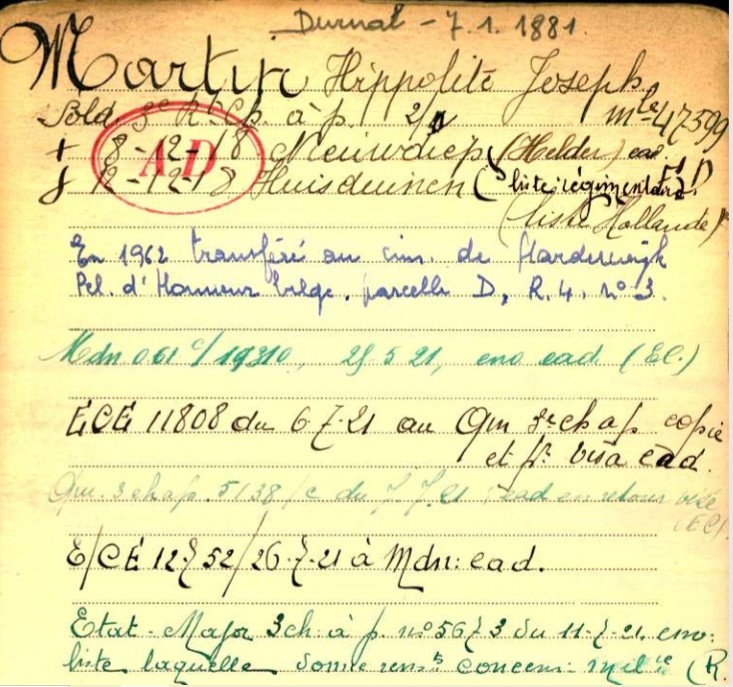 Durnal - 7.1.1881.
Martin Hippolite Joseph
Sold 3e R. Ch. à p. 2/ mle 47599
+ 8-12-18 Nieuwdiep (Helder) ead
AD
12-12-18 Huisduinen (liste régimentaire)
(liste Hollande)
En 1962 transféré au cim. de Harderwijk
Pel. d'Honneur belge, parcelle D, R. 4. n° 3.
Mdn 061 c/19310, 28 5 21, env ead (EC.)
ECE 11808 du 6-7-21 au Qm 3e ch a p. copie
et pr visa ead.
Qm. 3 ch a p. 5138/c du 7.7.21 ead en retour visé
(EC)
E/CE 12752/26-7-21 à Mdn: ead.
Etat-Major 3 ch à p. n° 5673 du 11-7-21 env:
liste laquelle donne renSts concern: milre (R.